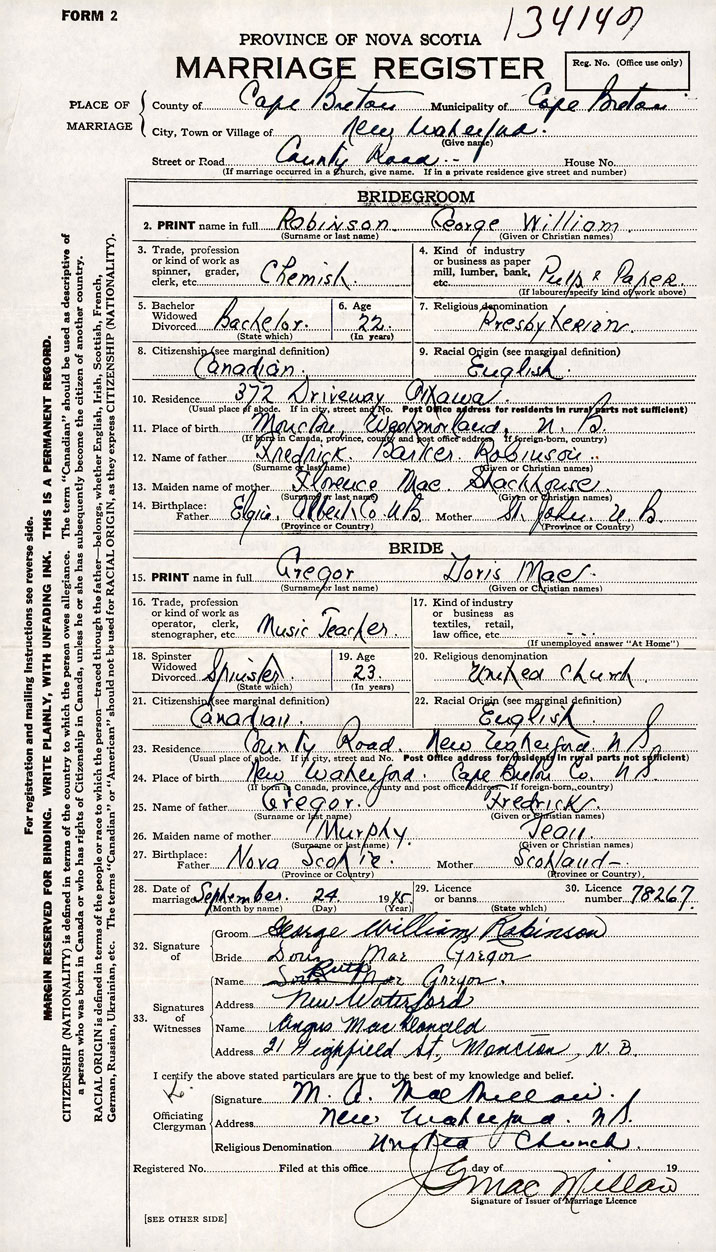 FORM 2
134147
PROVINCE OF NOVA SCOTIA
MARRIAGE REGISTER
Reg. No. (Office use only)
PLACE OF MARRIAGE
County of Cape Breton Municipality of Cape Breton
City, Town or Village of New Waterford.
(Give name)
Street or Road County Road -- House No.
(If marriage occurred in a church, give name. If in a private residence give street and number)
BRIDEGROOM
2. PRINT name in full Robinson George William.
(Surname or last name) (Given or Christian names)
3. Trade, profession or kind of work as spinner, grader, clerk, etc. Chemist.
4. Kind of industry or business as paper mill, lumber, bank, etc. Pulp & Paper
(If labourer specify kind of work above)
5. Bachelor Widowed Divorced Bachelor.
(State which)
6. Age 22.
(In years)
7. Religious denomination Presbyterian
8. Citizenship (see marginal definition) Canadian.
9. Racial Origin (see marginal definition) English.
10. Residence 372 Driveway Ottawa.
(Usual place of abode. If in city, street and No. Post Office address for residents in rural parts not sufficient)
11. Place of birth Moncton, Westmorland, N. B.
(If born in Canada, province, county and post office address. If foreign-born, country)
12. Name of father Fredrick. Barker Robinson..
(Surname or last name) (Given or Christian names)
13. Maiden name of mother Florence Mae. Stackhouse
(Surname or last name) (Given or Christian names)
14. Birthplace: Father Elgin. Albert Co. N B. Mother St. John. N. B.
(Province or Country) (Province or Country)
BRIDE
15. PRINT name in full Gregor Doris Mae.
(Surname or last name) (Given or Christian names)
16. Trade, profession or kind of work as operator, clerk, stenographer, etc. Music Teacher.
17. Kind of industry or business as textiles, retail, law office, etc. - - -
(If unemployed answer "At Home")
18. Spinster Widowed Divorced Spinster.
(State which)
19. Age 23.
(In years)
20. Religious denomination United Church
21. Citizenship (see marginal definition) Canadian.
22. Racial Origin (see marginal definition) English.
23. Residence County Road. New Waterford. N S.
(Usual place of abode. If in city, street and No. Post Office address for residents in rural parts not sufficient)
24. Place of birth New Waterford. Cape Breton Co. N S.
(If born in Canada, province, county and post office address. If foreign-born, country)
25. Name of father Gregor. Fredrick
(Surname or last name) (Given or Christian names)
26. Maiden name of mother Murphy. Jean.
(Surname or last name) (Given or Christian names)
27. Birthplace: Father Nova Scotia. Mother Scotland-
(Province or Country) (Province or Country)
28. Date of marriage September. 24. 1945.
(Month by name) (Day) (Year)
29. Licence or banns
(State which)
30. Licence number 78267.
32. Signature of
Groom George William Robinson
Bride Doris Mae Gregor
33. Signatures of Witnesses
Name Ruth Gregor.
Address New Waterford
Name Angus MacDonald
Address 21 Highfield St, Moncton, N. B.
I certify the above stated particulars are true to the best of my knowledge and belief.
Officiating Clergyman
Signature M. A. MacMillan.
Address New Waterford. N S.
Religious Denomination United Church.
Registered No. Filed at this office day of 19
J G MacMillan
Signature of Issuer of Marriage Licence
[SEE OTHER SIDE]
For registration and mailing instructions see reverse side.
MARGIN RESERVED FOR BINDING. WRITE PLAINLY, WITH UNFADING INK. THIS IS A PERMANENT RECORD.
CITIZENSHIP (NATIONALITY) is defined in terms of the country to which the person owes allegiance. The term "Canadian" should be used as descriptive of
a person who was born in Canada or who has rights of Citizenship in Canada, unless he or she has subsequently become the citizen of another country.
RACIAL ORIGIN is defined in terms of the people or race to which the person—traced through the father—belongs, whether English, Irish, Scottish, French,
German, Russian, Ukrainian, etc. The terms "Canadian" or "American" should not be used for RACIAL ORIGIN, as they express CITIZENSHIP (NATIONALITY).